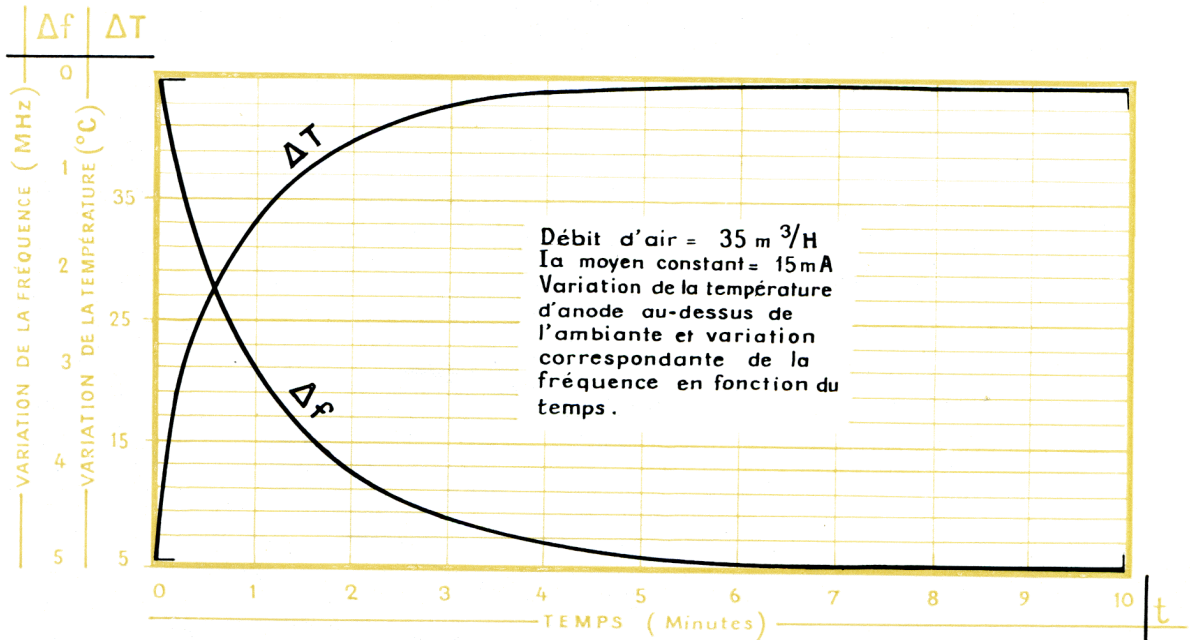 Δf ΔT
VARIATION DE LA FRÉQUENCE (MHz)
VARIATION DE LA TEMPÉRATURE (°C)
0
1
2
3
4
5
35
25
15
5
ΔT
Δf
Débit d'air = 35 m³/H
Ia moyen constant = 15mA
Variation de la température
d'anode au-dessus de
l'ambiante et variation
correspondante de la
fréquence en fonction du
temps.
0 1 2 3 4 5 6 7 8 9 10
t
TEMPS (Minutes)